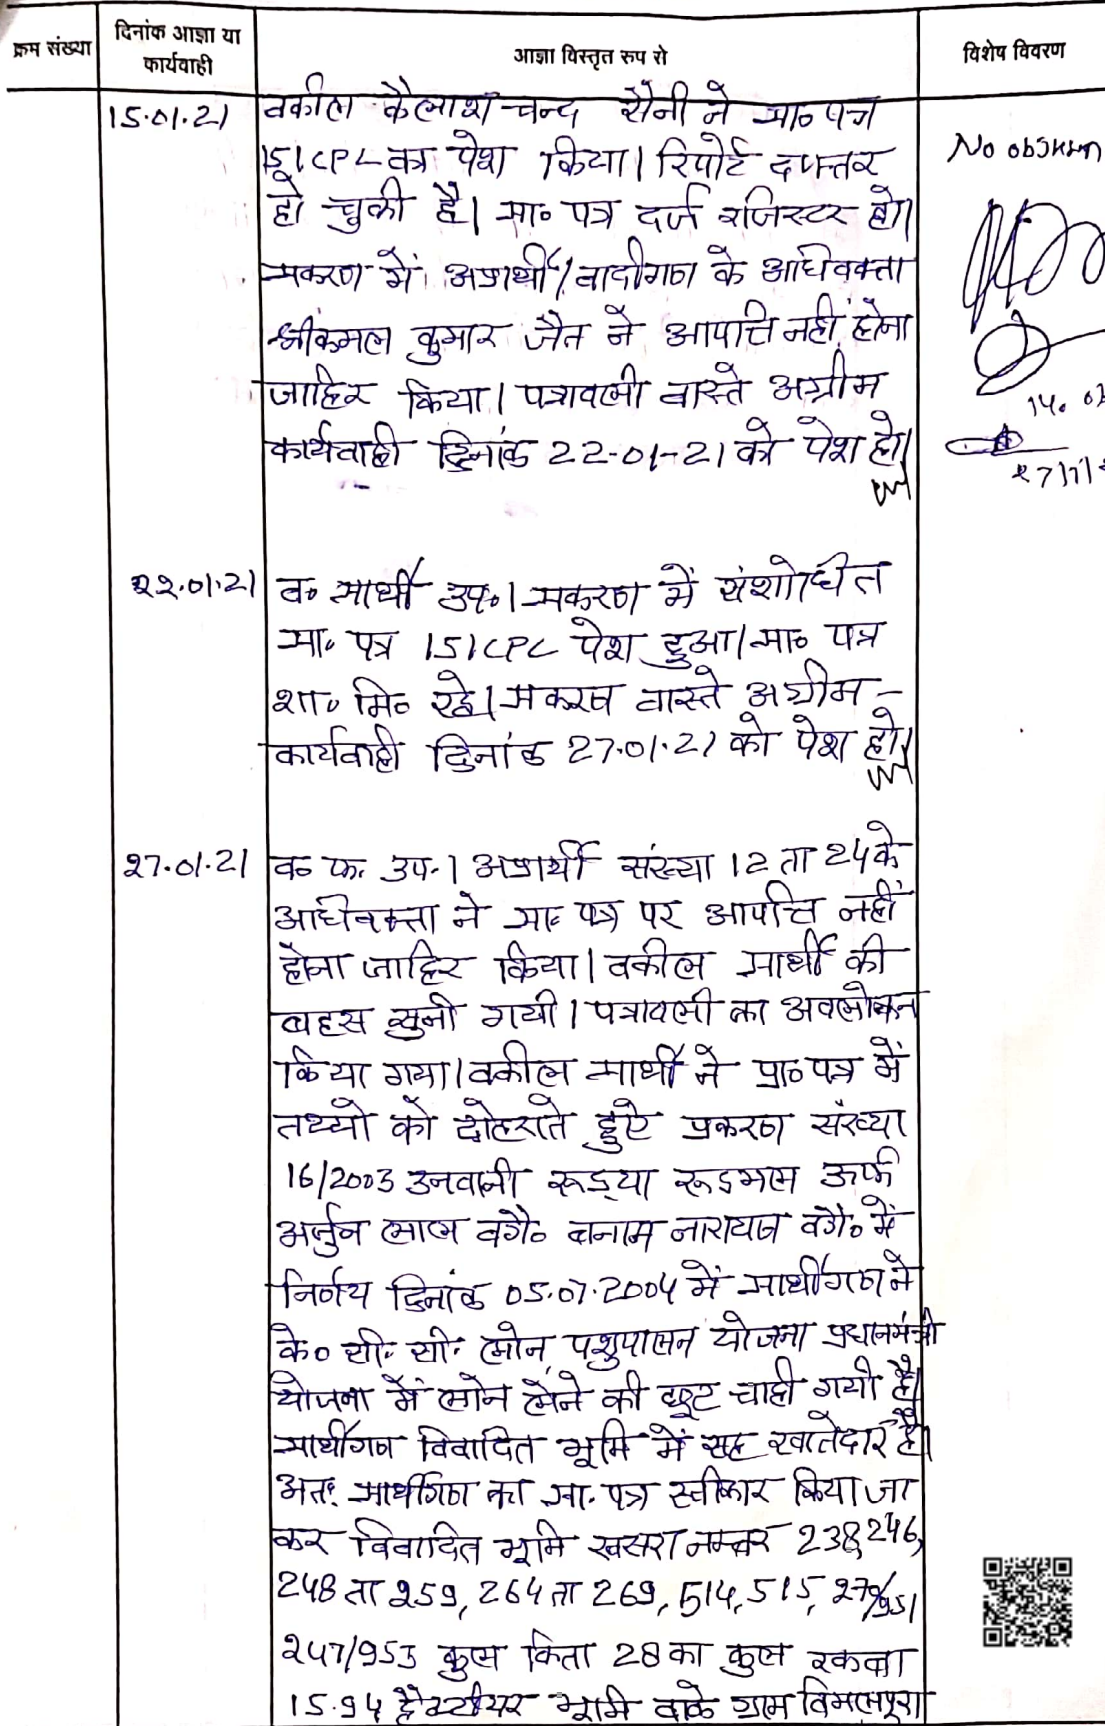 क्रम संख्या
दिनांक आज्ञा या
कार्यवाही
आज्ञा विस्तृत रुप रो
विशेष विवरण
15.01.21
वकील कैलाश चन्द सैनी ने प्रा० पत्र
151 CPC का पेश किया। रिपोर्ट दफ्तर
हो चुकी है। प्रा० पत्र दर्ज रजिस्टर हो।
प्रकरण में अप्रार्थी/वादीगण के अधिवक्ता
श्री कमल कुमार जैन ने आपत्ति नहीं होना
जाहिर किया। पत्रावली वास्ते अग्रीम
कार्यवाही दिनांक 22-01-21 को पेश हो।
No
14.
22.01.21
व० प्रार्थी उप०। प्रकरण में संशोधित
प्रा० पत्र 151 CPC पेश हुआ। प्रा० पत्र
शा० मि० रहे। प्रकरण वास्ते अग्रीम -
कार्यवाही दिनांक 27.01.21 को पेश हो।
27.01.21
व० फ. उप.। अप्रार्थी संख्या 12 ता 24 के
अधिवक्ता ने प्रा० पत्र पर आपत्ति नहीं
होना जाहिर किया। वकील प्रार्थी की
बहस सुनी गयी। पत्रावली का अवलोकन
किया गया। वकील प्रार्थी ने प्रा० पत्र में
तथ्यो को दोहराते हुऐ प्रकरण संख्या
16/2003 उनवानी रूड्या रूडमल ऊर्फ
अर्जुन लाल वगै० बनाम नारायण वगै० में
निर्णय दिनांक 05.07.2004 में प्रार्थीगण ने
के० सी. सी. लोन, पशुपालन योजना प्रधानमंत्री
योजना में लोन लेने की छूट चाही गयी है।
प्रार्थीगण विवादित भूमि में सह खातेदार है।
अतः प्रार्थीगण का प्रा. पत्र स्वीकार किया जा
कर विवादित भूमि खसरा नम्बर 238, 246,
248 ता 259, 264 ता 269, 514, 515, 270/951
247/953 कुल किता 28 का कुल रकबा
15.94 हैक्टीयर भूमि वाके ग्राम विमलपुरा